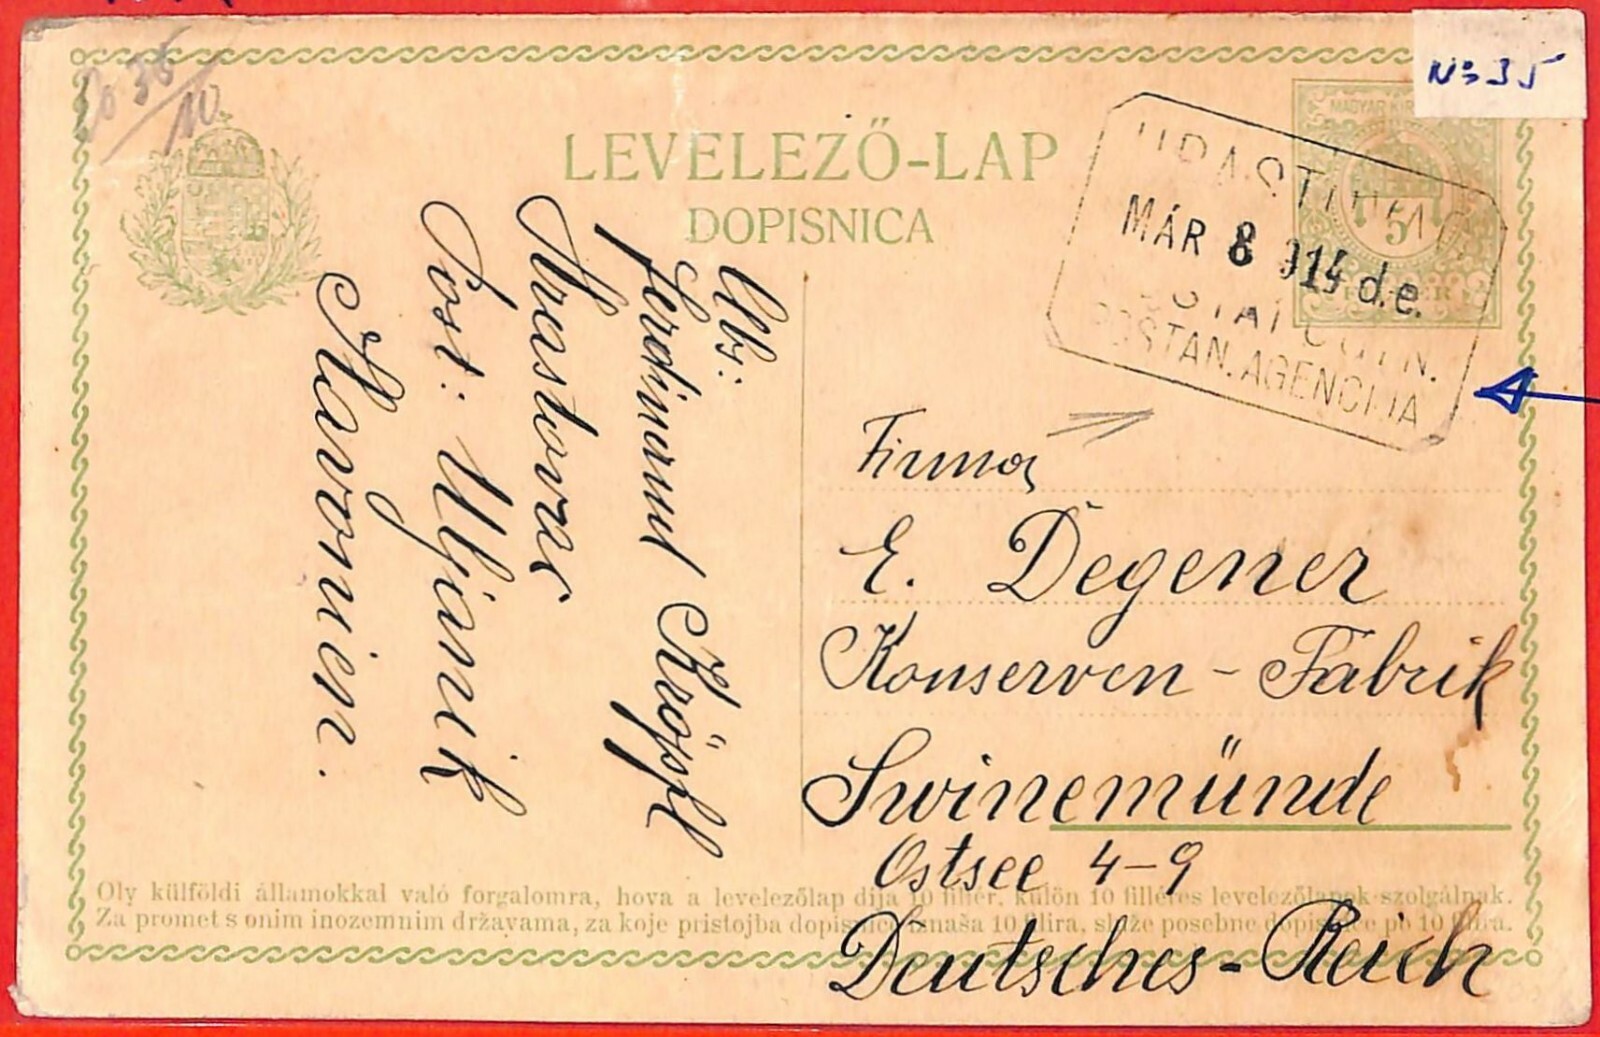 No 35
35/10
LEVELEZŐ-LAP
DOPISNICA
MAGYAR KIR
5
MÁR 8 914 d.e.
POŠTAN. AGENCIJA
Abs:
Ferdinand Krössl
Hrastovac
Post: Uljanik
Slavonien.
Firma
E. Degener
Konserven - Fabrik
Swinemünde
Ostsee 4-9
Deutsches-Reich
Oly külföldi államokkal való forgalomra, hova a levelezőlap dija 10 fillér, külön 10 filléres levelezőlapok szolgálnak.
Za promet s onim inozemnim državama, za koje pristojba dopisnice iznaša 10 filira, služe posebne dopisnice po 10 filira.